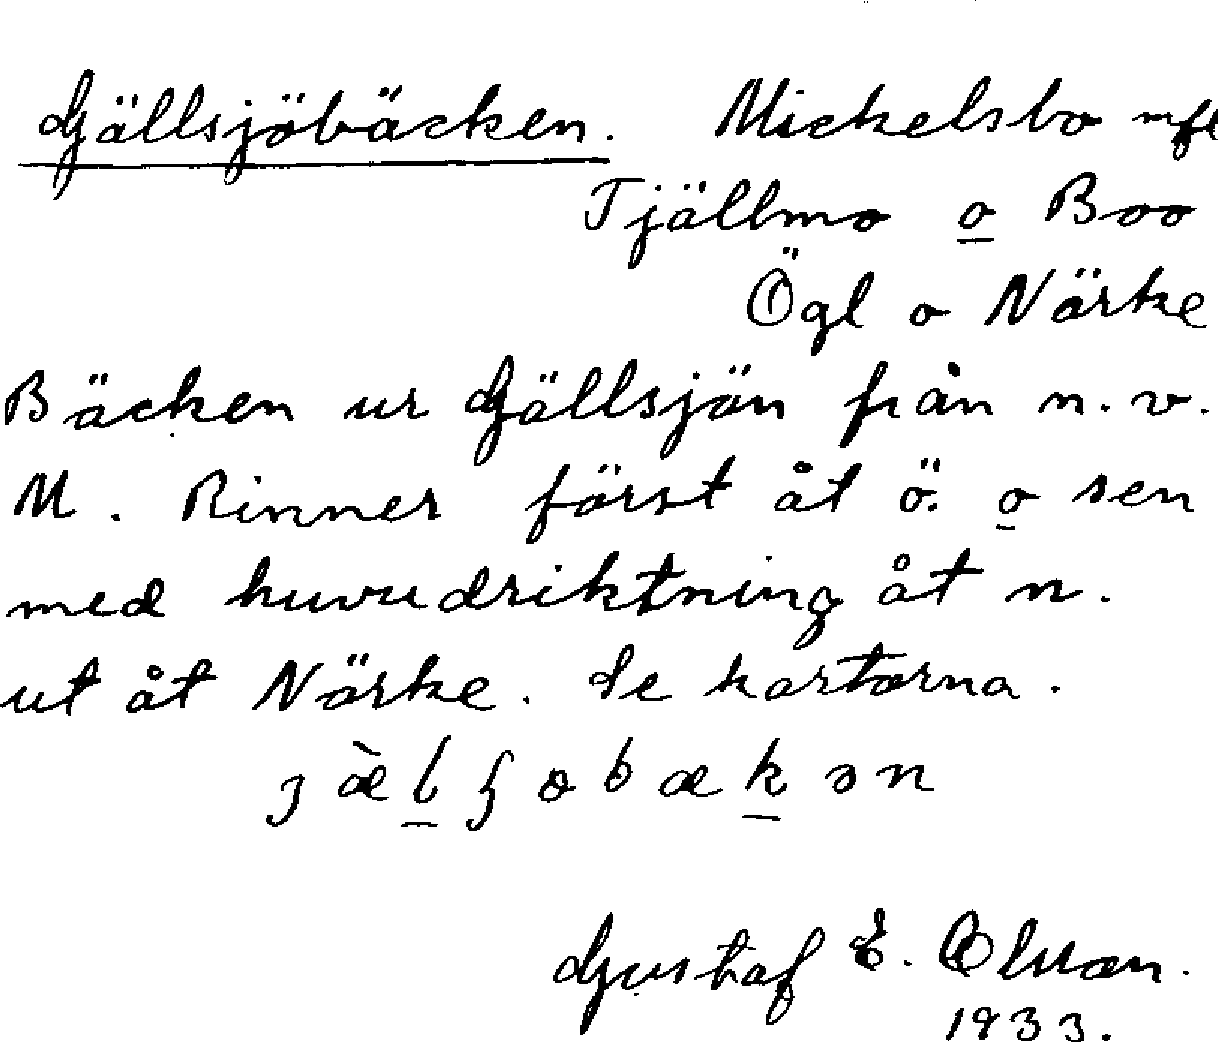 Gällsjöbäcken. Mickelsbo mfl
Tjällmo o Boo
Ögl o Närke
Bäcken ur Gällsjön från n.v.
M. Rinner först åt ö. o sen
med huvudriktning åt n.
ut åt Närke. Se kartorna.
Gustaf E. Olsson.
1933.